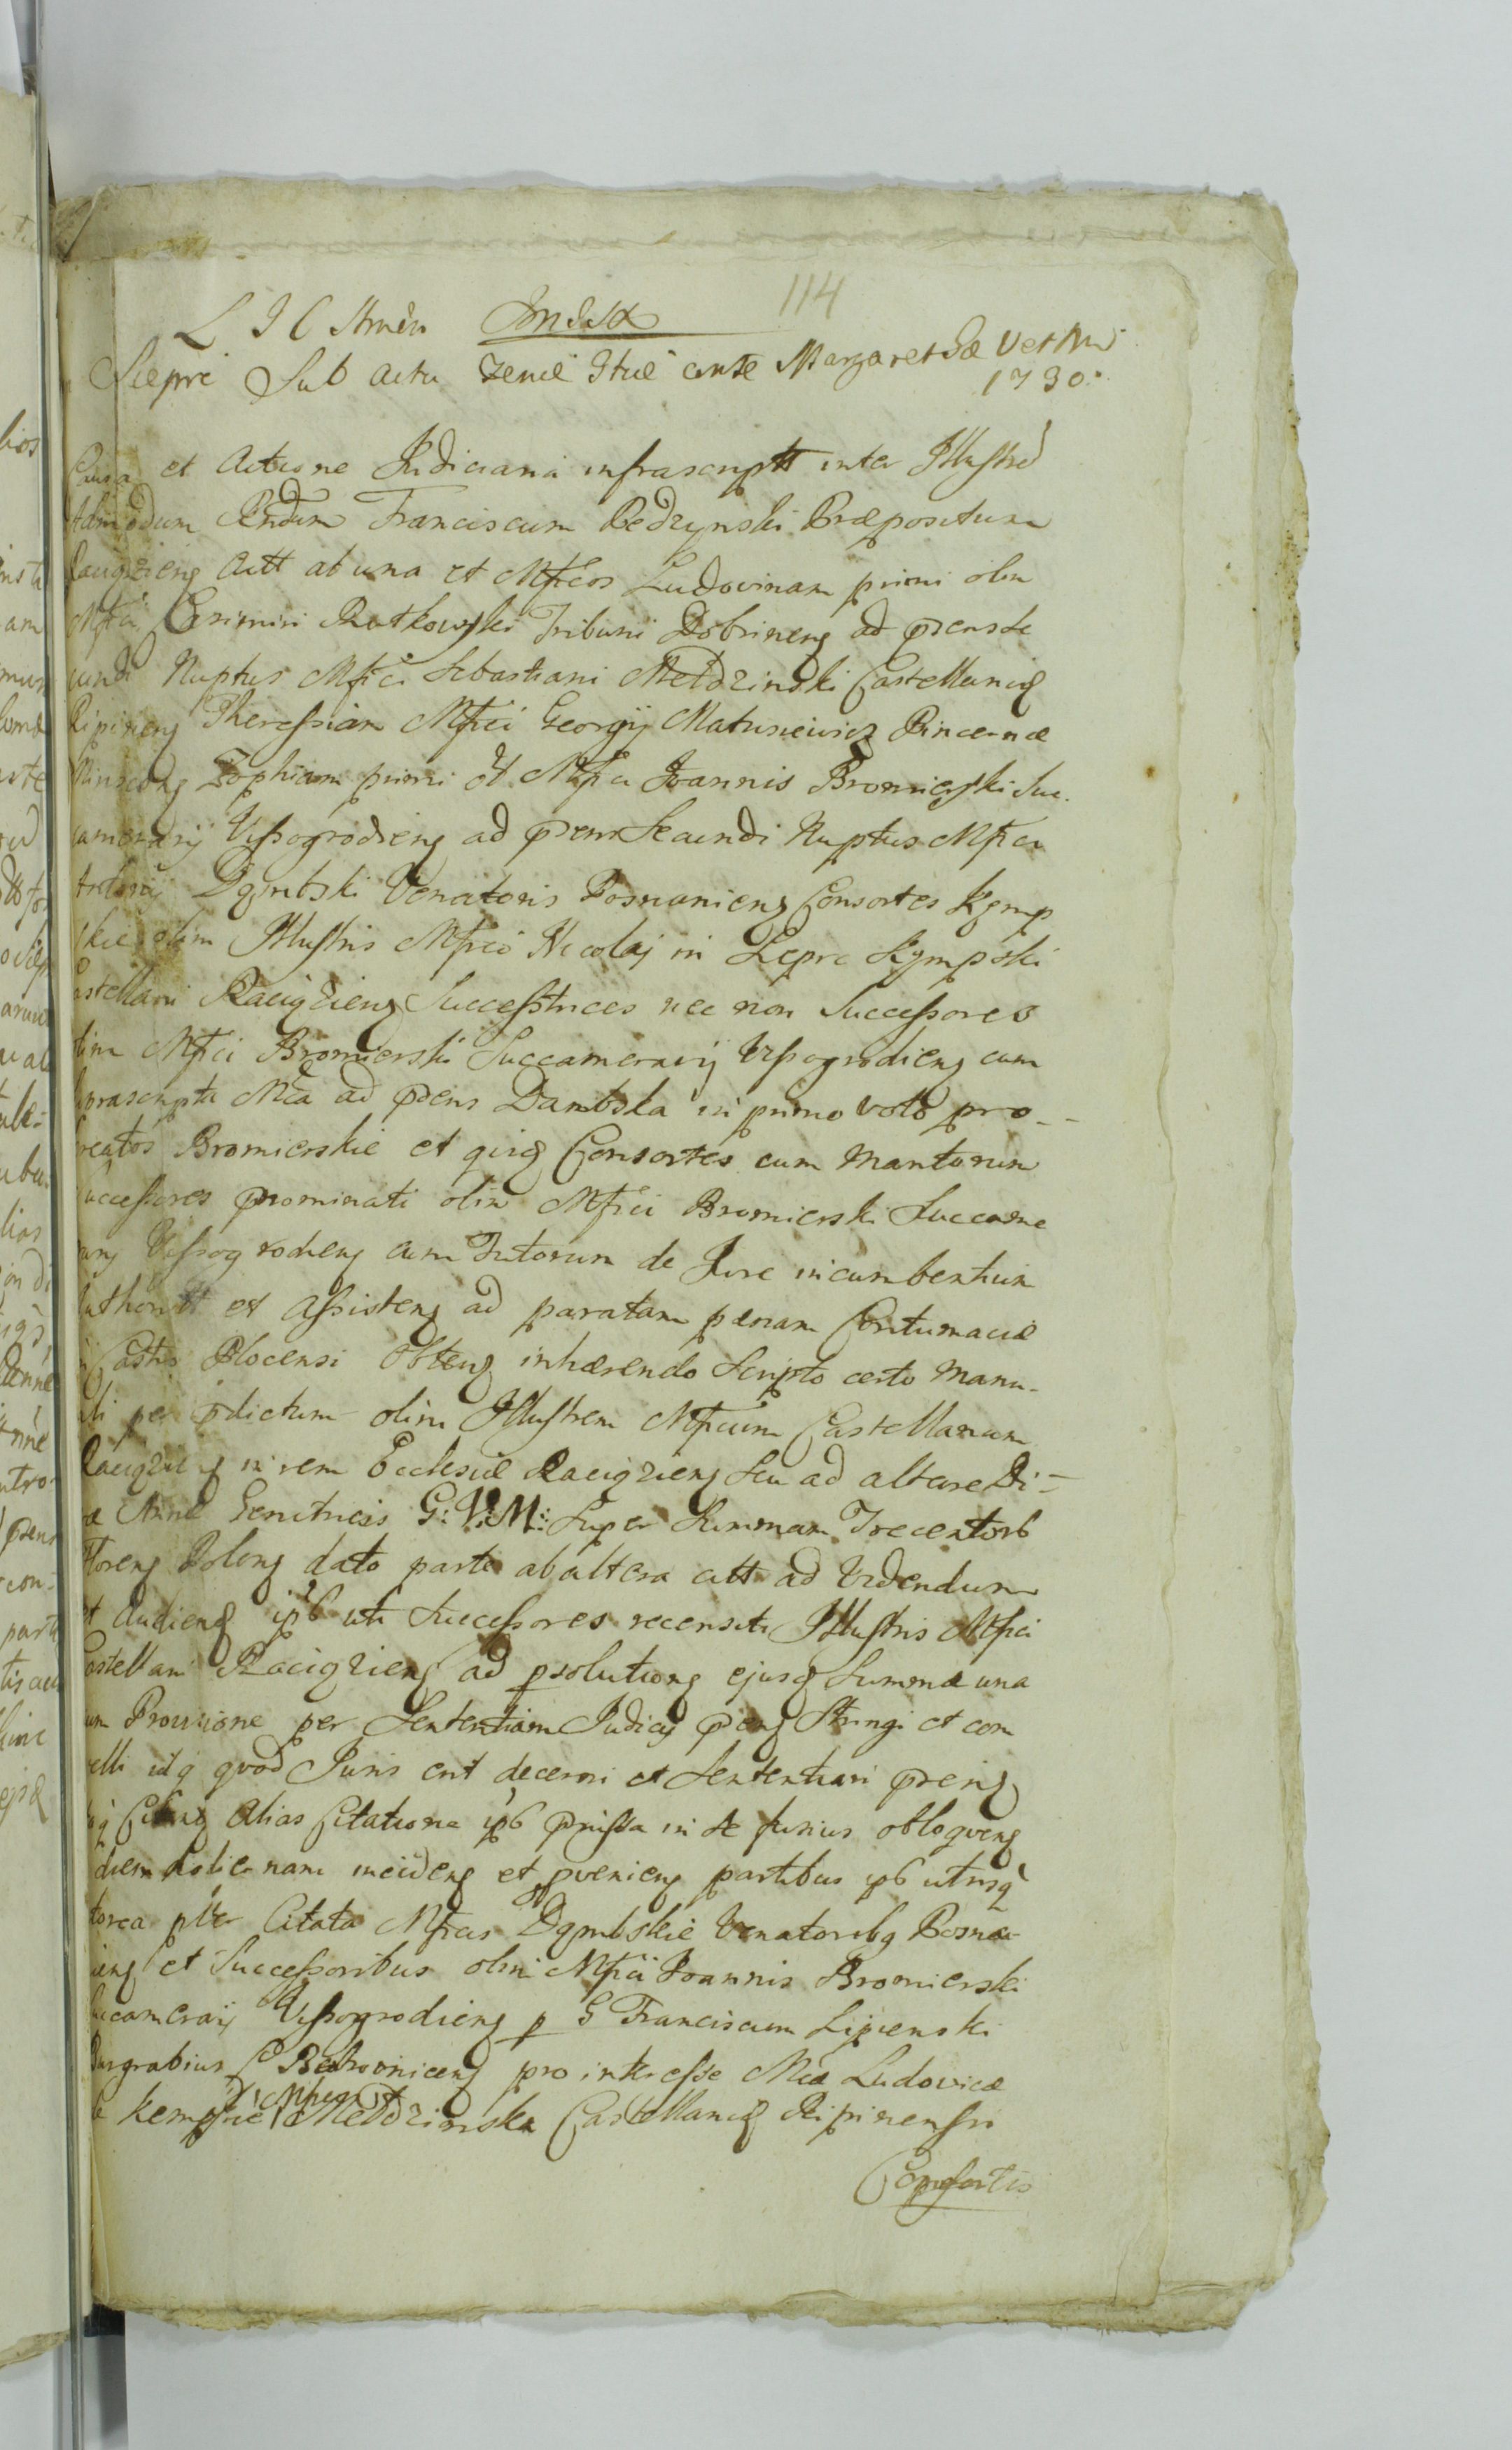 114
Siepre Sub Actu ante Margarethæ
1730.
Causa et Actione Judiciaria infrascriptt inter Illustrē
Admodum Rndum Franciscum Bedzynski Præpositum
Raciąziens Actt ab una et Mfcos Ludovinam primi olim
Mfci Casimiri Rutkowski Tribuni Dobrinens ad præns Se
cundi Nuptus Mfci Sebastiani Mełdzinski Castellanis
Ripinens Theressiam Mfici Georgij Matusiewicz Pincernæ
Minscens Zophiam primi Mfci Joannis Bromierski Suc
camerarij Vissogrodiens ad præns Secundi Nuptus Mfici
Dąmbski Venatoris Posnaniens Consortes Kęmp
skie olim Illustris Mfici Nicolaj in Lepre Kęmpski
Castellani Raciąziens Successtrices nec non Successores
olim Mfici Bromierski Succamerarij Vissogrodiens cum
suprascripta Mca ad præns Dambska in primo voto pro-
creatos Bromierskie et Consortes cum Maritorum
Successores prominati olim Mfici Bromierski Succame
rarij Vissogrodiens cum Tutorum de Jure incumbentium
Authoritt et Assistens ad paratam pænam Contumaciæ
in Castro Plocensi Obtens inhærendo Scripto certo Manu-
ali per pdictum olim Illustrem Mficum Castellanum
Raciąziens in rem Ecclesiæ Raciąziens Seu ad altare Di-
væ Annæ Genitricis G: V: M: Super Summam Trecentorb
Florens Polens dato parte ab altera citt ad Videndum
et Audiens ipb uti Successores recensiti Illustris Mfici
Castellani Raciąziens ad psolutions ejusq Summæ una
cum Provisione per Sententiam Judicij præns Stringi et com
pelli idq quod Juris erit decerni et Sententiari præns
Citans Alias Citatione ipb pmissa in Se fusius obloquens
diem hodiernam incidens et pveniens partibus ipb utrisq
Citata Mficis Dąmbskie Venatoribq Posna-
niens et Successoribus olim Mfici Joannis Bromierski
Succamerarij Vissogrodiens p G Franciscum Lipienski
Burgrabius C Bobrovnicens pro interesse Mcæ Ludovicæ
a Kempskie Mełdzinska Castellanis Ripinensis
Consortis